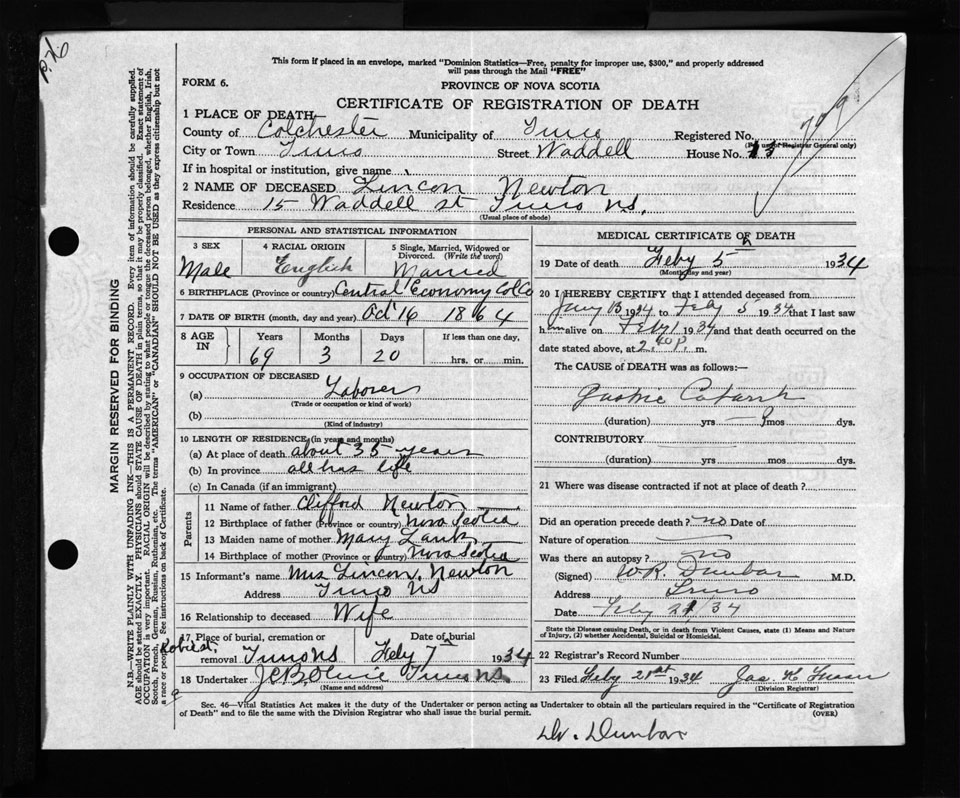 This form if placed in an envelope, marked "Dominion Statistics—Free, penalty for improper use, $300," and properly addressed
will pass through the Mail "FREE"
FORM 6.
PROVINCE OF NOVA SCOTIA
CERTIFICATE OF REGISTRATION OF DEATH
1 PLACE OF DEATH
County of Colchester Municipality of Truro Registered No.
(For use of Registrar General only)
City or Town Truro Street Waddell House No.
If in hospital or institution, give name
2 NAME OF DECEASED Lincon Newton
Residence 15 Waddell st Truro NS.
(Usual place of abode)
PERSONAL AND STATISTICAL INFORMATION
3 SEX
Male
4 RACIAL ORIGIN
English
5 Single, Married, Widowed or
Divorced. (Write the word)
Married
6 BIRTHPLACE (Province or country) Central Economy Col Co
7 DATE OF BIRTH (month, day and year) Oct 16 1864
8 AGE IN
Years Months Days If less than one day,
69 3 20 hrs. or min.
9 OCCUPATION OF DECEASED
(a) Laborer
(Trade or occupation or kind of work)
(b)
(Kind of industry)
10 LENGTH OF RESIDENCE (in years and months)
(a) At place of death about 35 years
(b) In province all his life
(c) In Canada (if an immigrant)
Parents
11 Name of father Clifford Newton
12 Birthplace of father (Province or country) Nova Scotia
13 Maiden name of mother Mary
14 Birthplace of mother (Province or Country) Nova Scotia
15 Informant's name Mrs Lincon Newton
Address Truro NS
16 Relationship to deceased Wife
17 Place of burial, cremation or
removal Truro NS
Date of burial
Feby 7 1934
18 Undertaker Truro NS
(Name and address)
MEDICAL CERTIFICATE OF DEATH
19 Date of death Feby 5th 1934
(Month, day and year)
20 I HEREBY CERTIFY that I attended deceased from
Jany 13 1934 to Feby 5 1934 that I last saw
him alive on Feby 1 1934 and that death occurred on the
date stated above, at 2.40 P. m.
The CAUSE of DEATH was as follows:—
Catarrh
(duration) yrs mos dys.
CONTRIBUTORY
(duration) yrs mos dys.
21 Where was disease contracted if not at place of death?
Did an operation precede death? no Date of
Nature of operation
Was there an autopsy? no
(Signed) W.R. Dunbar M.D.
Address Truro
Date Feby 21/34
State the Disease causing Death, or in death from Violent Causes, state (1) Means and Nature
of Injury, (2) whether Accidental, Suicidal or Homicidal.
22 Registrar's Record Number
23 Filed Feby 21st 1934 Jas. H.
(Division Registrar)
Sec. 46—Vital Statistics Act makes it the duty of the Undertaker or person acting as Undertaker to obtain all the particulars required in the "Certificate of Registration
of Death" and to file the same with the Division Registrar who shall issue the burial permit.
(OVER)
Dr. Dunbar
MARGIN RESERVED FOR BINDING
N.B.—WRITE PLAINLY WITH UNFADING INK—THIS IS A PERMANENT RECORD. Every item of information should be carefully supplied.
AGE should be stated EXACTLY. PHYSICIANS should STATE CAUSE OF DEATH in plain terms, so that it may be properly classified. Exact statement of
OCCUPATION is very important. RACIAL ORIGIN will be described by stating to what people or tongue the deceased person belonged, whether English, Irish,
Scotch, French, German, Russian, Ruthenian, etc. The terms "AMERICAN" or "CANADIAN" SHOULD NOT BE USED as they express citizenship but not
a race or people. See instructions on back of Certificate.